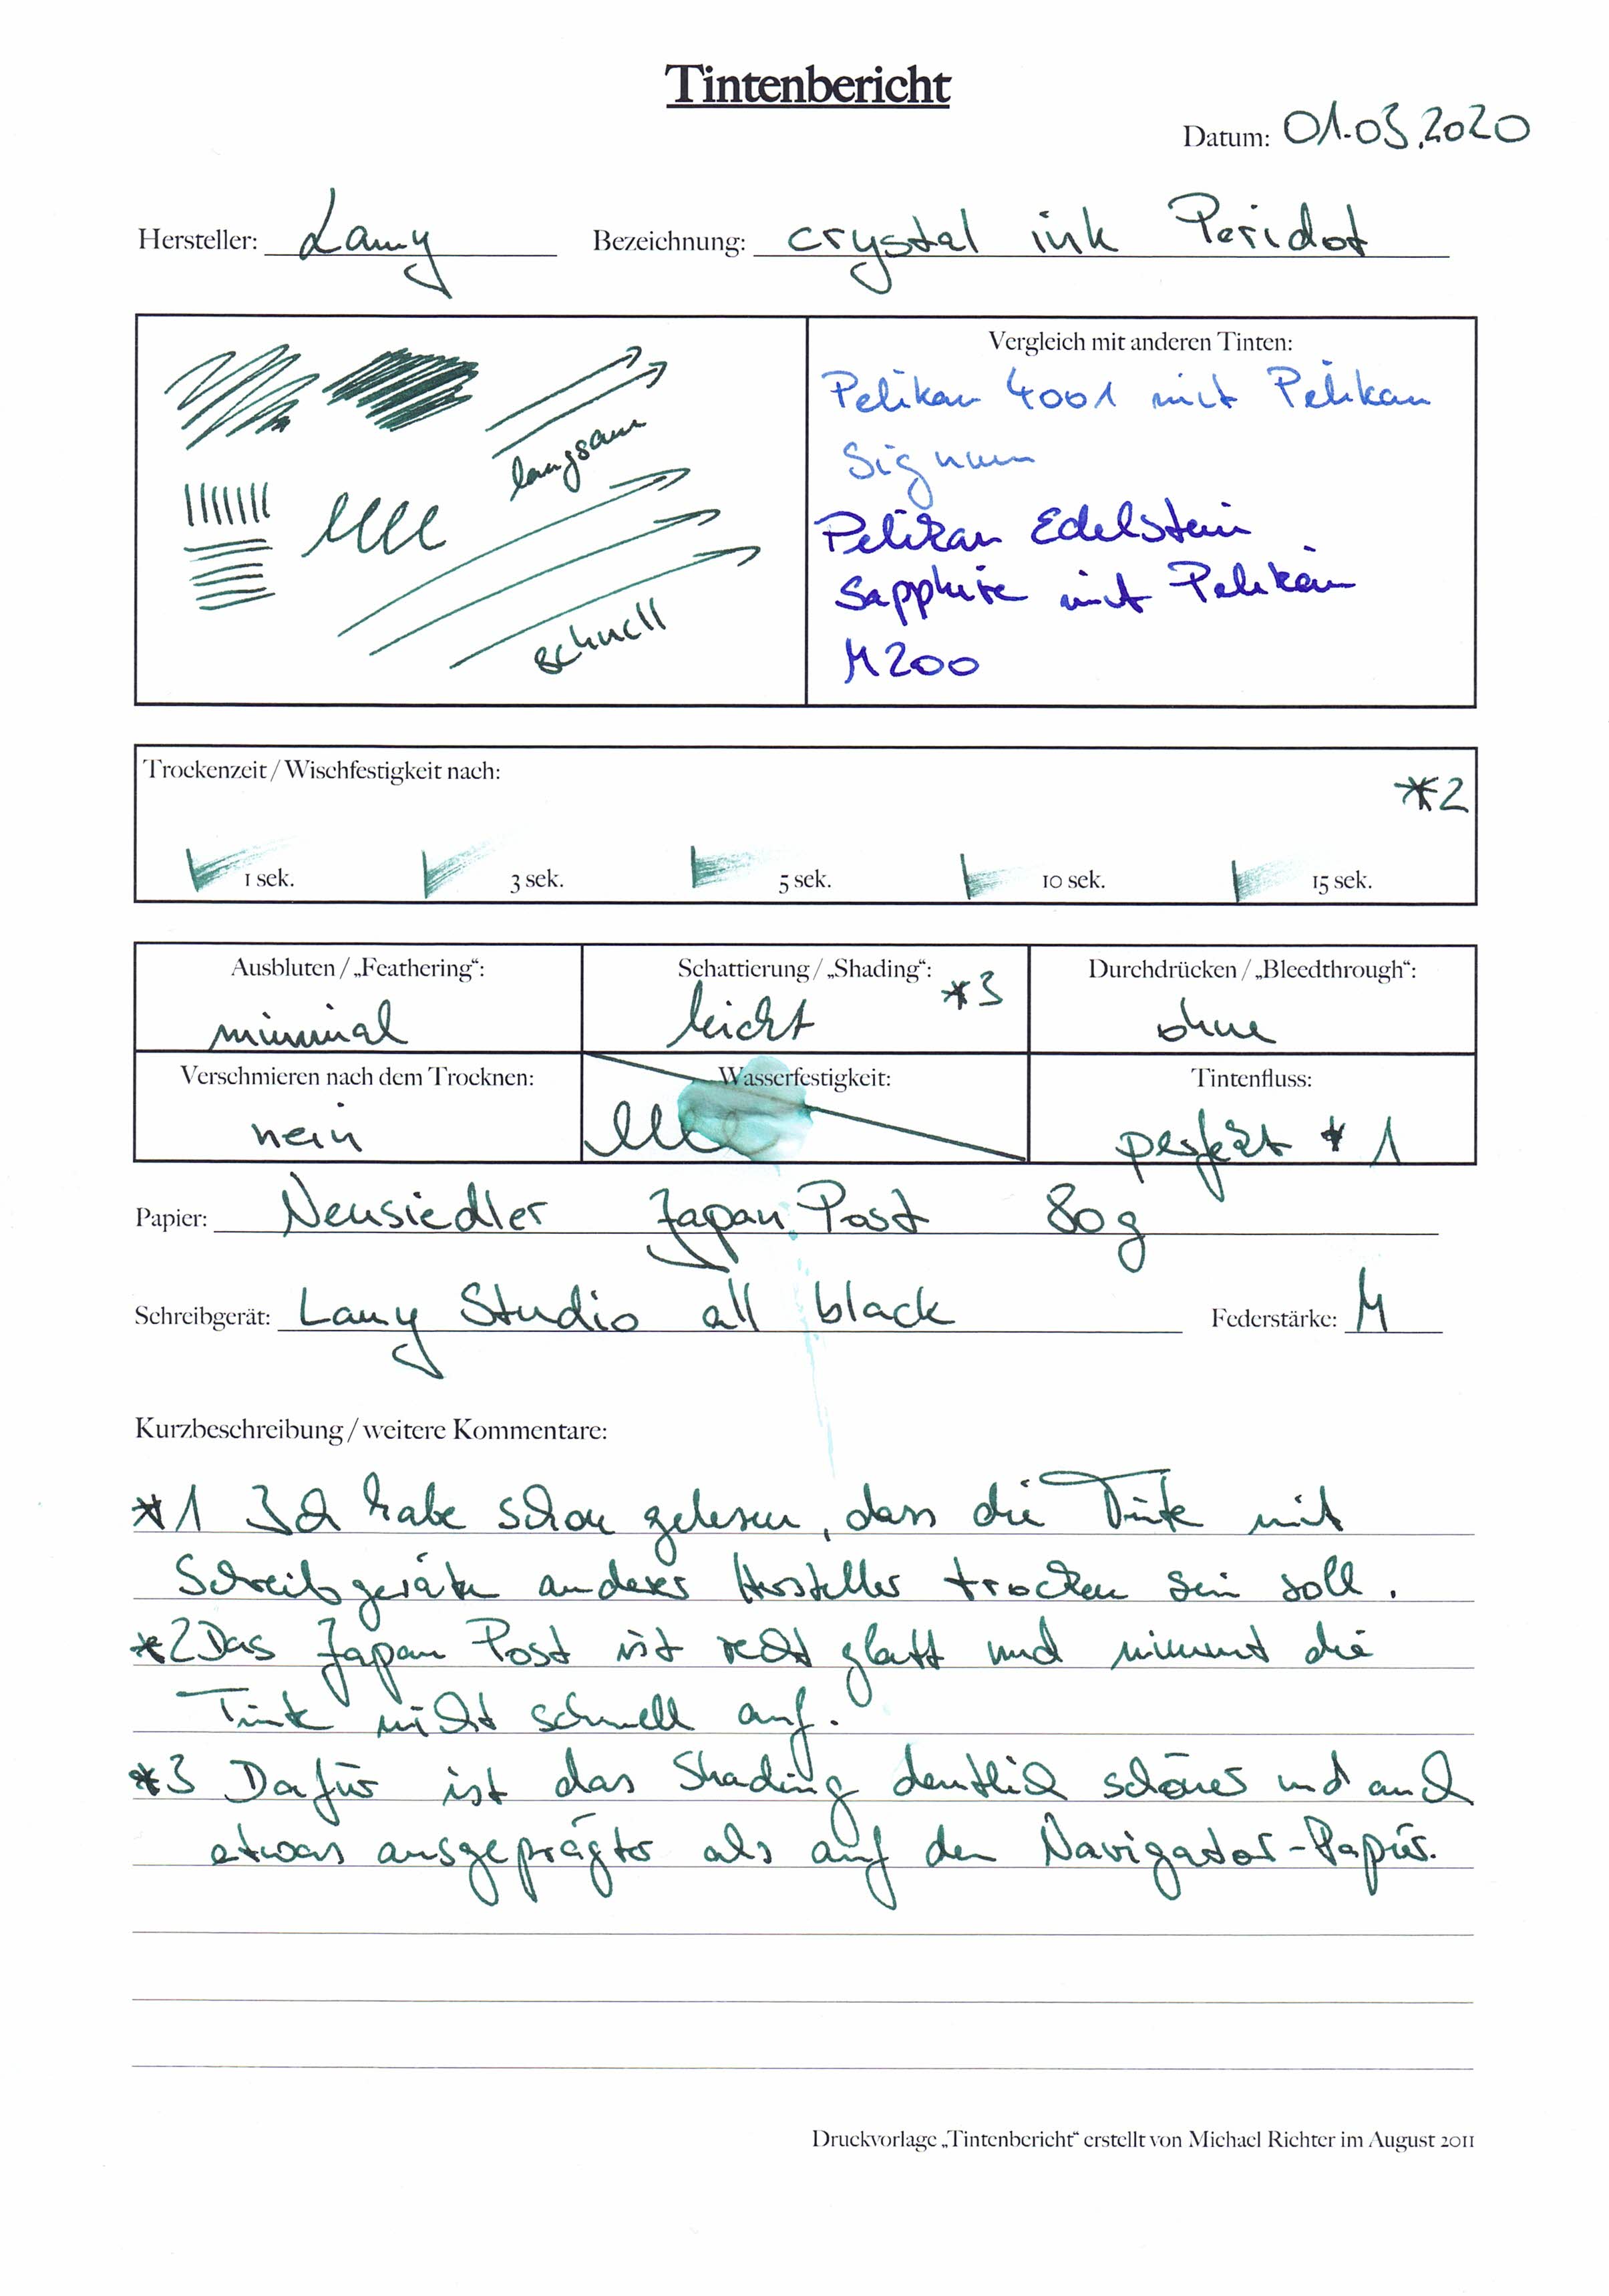 Tintenbericht
Datum: 01.03.2020
Hersteller: Lamy Bezeichnung: crystal ink Peridot
langsam
schnell
Vergleich mit anderen Tinten:
Pelikan 4001 mit Pelikan
Signum
Pelikan Edelstein
Sapphire mit Pelikan
M200
Trockenzeit / Wischfestigkeit nach:
*2
1 sek. 3 sek. 5 sek. 10 sek. 15 sek.
Ausbluten / „Feathering“: Schattierung / „Shading“: Durchdrücken / „Bleedthrough“:
minimal leicht *3 ohne
Verschmieren nach dem Trocknen: Wasserfestigkeit: Tintenfluss:
nein perfekt *1
Papier: Neusiedler Japan Post 80g
Schreibgerät: Lamy Studio all black Federstärke: M
Kurzbeschreibung / weitere Kommentare:
*1 Ich habe schon gelesen, dass die Tinte mit
Schreibgeräten anderer Hersteller trocken sein soll.
*2 Das Japan Post ist recht glatt und nimmt die
Tinte nicht schnell auf.
*3 Dafür ist das Shading deutlich schöner und auch
etwas ausgeprägter als auf dem Navigator-Papier.
Druckvorlage „Tintenbericht“ erstellt von Michael Richter im August 2011